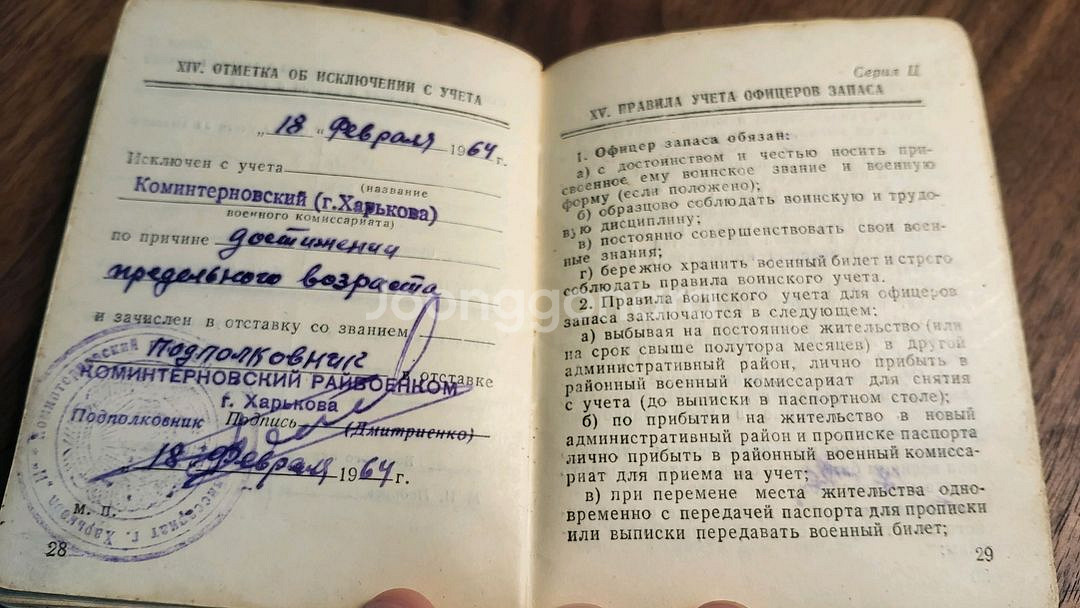 XIV. ОТМЕТКА ОБ ИСКЛЮЧЕНИИ С УЧЕТА
„18" Февраля 1964 г.
Исключен с учета
(название
Коминтерновский (г.Харькова)
военного комиссариата)
по причине достижении
предельного возраста
и зачислен в отставку со званием
Подполковник в отставке
КОМИНТЕРНОВСКИЙ РАЙВОЕНКОМ
г. Харькова
Подполковник Подпись (Дмитриенко)
18 Февраля 1964 г.
М. П.
28
Серия Ц
XV. ПРАВИЛА УЧЕТА ОФИЦЕРОВ ЗАПАСА
1. Офицер запаса обязан:
а) с достоинством и честью носить при-
своенное ему воинское звание и военную
форму (если положено);
б) образцово соблюдать воинскую и трудо-
вую дисциплину;
в) постоянно совершенствовать свои воен-
ные знания;
г) бережно хранить военный билет и строго
соблюдать правила воинского учета.
2. Правила воинского учета для офицеров
запаса заключаются в следующем:
а) выбывая на постоянное жительство (или
на срок свыше полутора месяцев) в другой
административный район, лично прибыть в
районный военный комиссариат для снятия
с учета (до выписки в паспортном столе);
б) по прибытии на жительство в новый
административный район и прописке паспорта
лично прибыть в районный военный комисса-
риат для приема на учет;
в) при перемене места жительства одно-
временно с передачей паспорта для прописки
или выписки передавать военный билет;
29